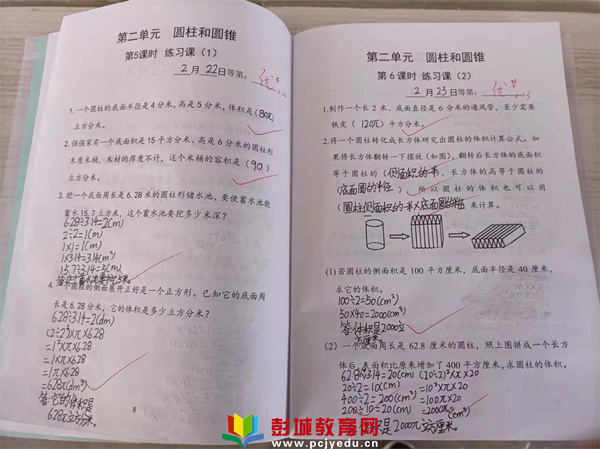 第二单元 圆柱和圆锥
第5课时 练习课（1）
2月22日等第：优
1.一个圆柱的底面半径是4分米,高是5分米,体积是(80π)
立方分米。
2.强强家有一个底面积是15平方分米、高是6分米的圆柱形
木质米桶,木材的厚度不计,这个米桶的容积是(90)
立方分米。
3.挖一个底面周长是6.28米的圆柱形储水池。要使蓄水池能
蓄水15.7立方米,这个蓄水池要挖多少米深?
6.28÷3.14=2(m)
2÷2=1(m)
1×1=1(m)
1×3.14=3.14(m²)
15.7÷3.14=5(m)
4.一个圆柱的侧面展开正好是一个正方形。已知它的底面周
长是6.28分米,它的体积是多少立方分米?
6.28÷3.14=2(dm)
(2÷2)²×π×6.28
=1²×π×6.28
=1×π×6.28
=1π×6.28
=6.28π(dm³)
答:它的体积是
6.28π立方分米。
8
第二单元 圆柱和圆锥
第6课时 练习课（2）
2月23日等第：优
1.制作一个长2米、底面直径是6分米的通风管,至少需要
铁皮(120π)平方分米。
2.将一个圆柱转化成长方体研究出圆柱的体积计算公式。如
果将长方体翻转一下摆放(如图),翻转后长方体的底面积
等于圆柱的(侧面积的一半),长方体的高等于圆柱的
(底面圆的半径),所以圆柱的体积也可以用
(圆柱侧面积的一半×底面圆的半径)来计算。
(1)若圆柱的侧面积是100平方厘米,底面半径是40厘米,
求它的体积。
100÷2=50(cm²)
50×40=2000(cm³)
答:体积是2000立
方厘米。
(2)一个底面周长是62.8厘米的圆柱,照上图拼成一个长方
体后,表面积比原来增加了400平方厘米,求圆柱的体积。
62.8÷3.14=20(cm) (20÷2)²×π×20
20÷2=10(cm) =10²×π×20
400÷2=200(cm²) =100π×20
200÷10=20(cm) =2000π(cm³)
积是2000π立方厘米。
彭城教育网
www.pcjyedu.cn